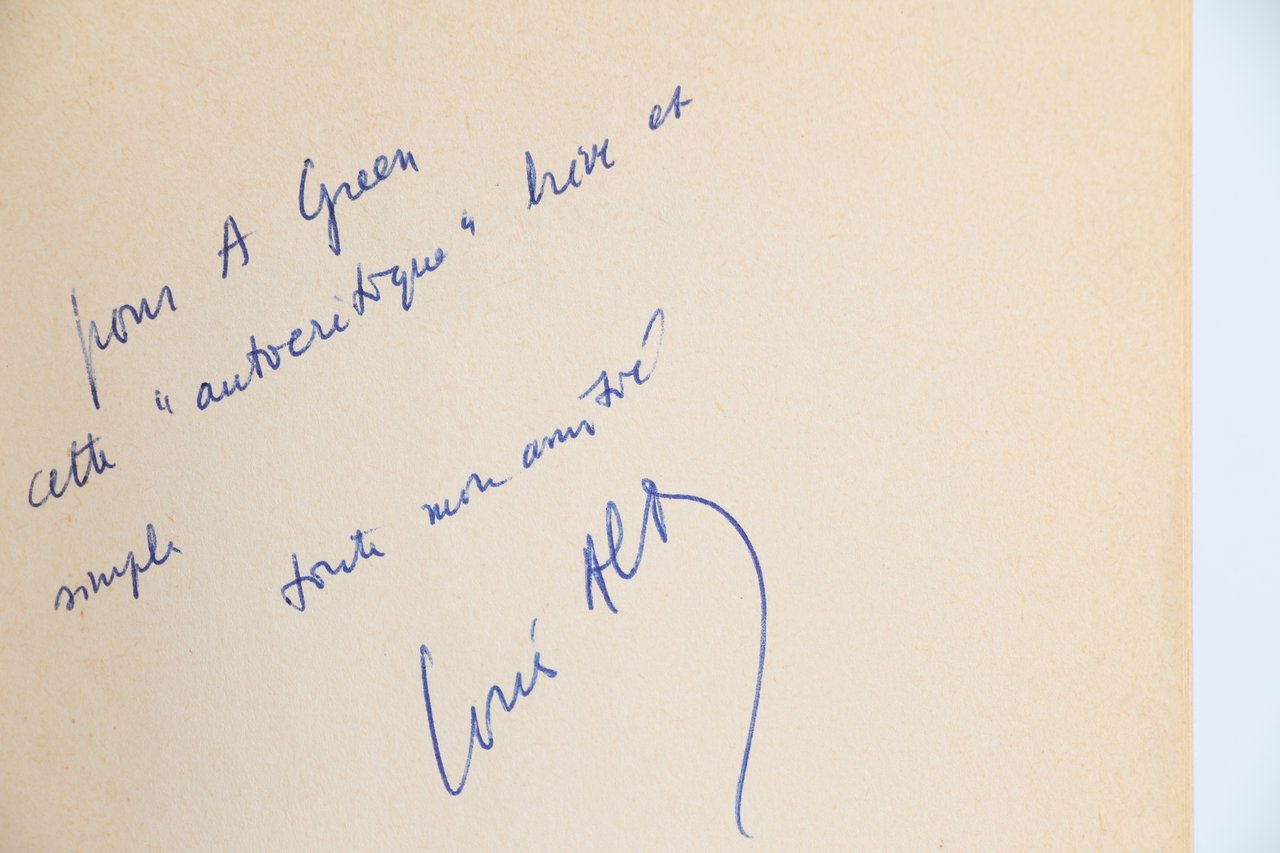 pour A Green
cette "autocritique" brève et
simple toute mon amitié
Louis Alt